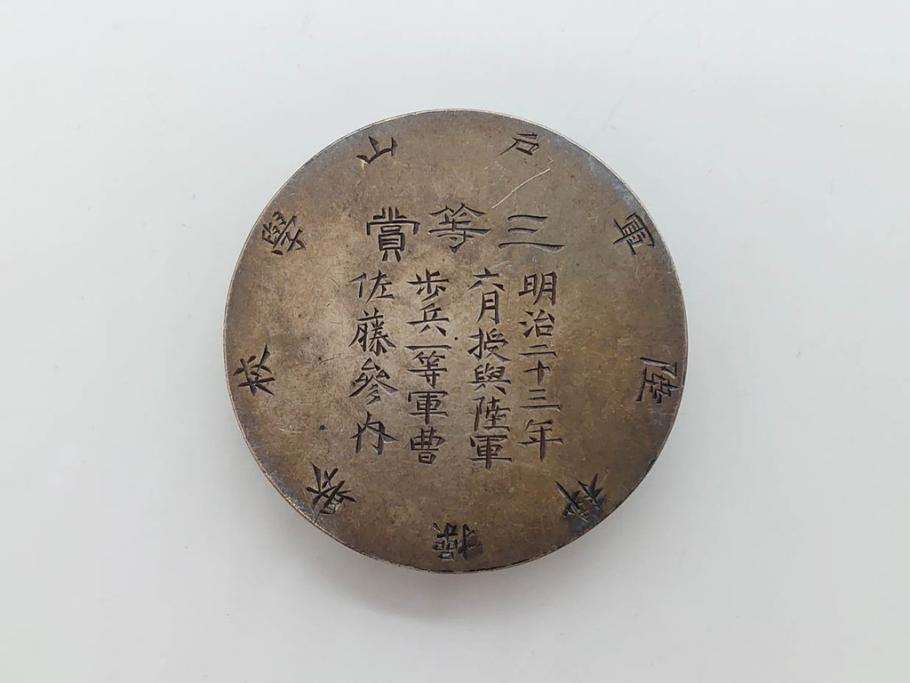 陸軍戸山學校
操
三等賞
明治二十三年
六月授與陸軍
歩兵一等軍曹
佐藤參内